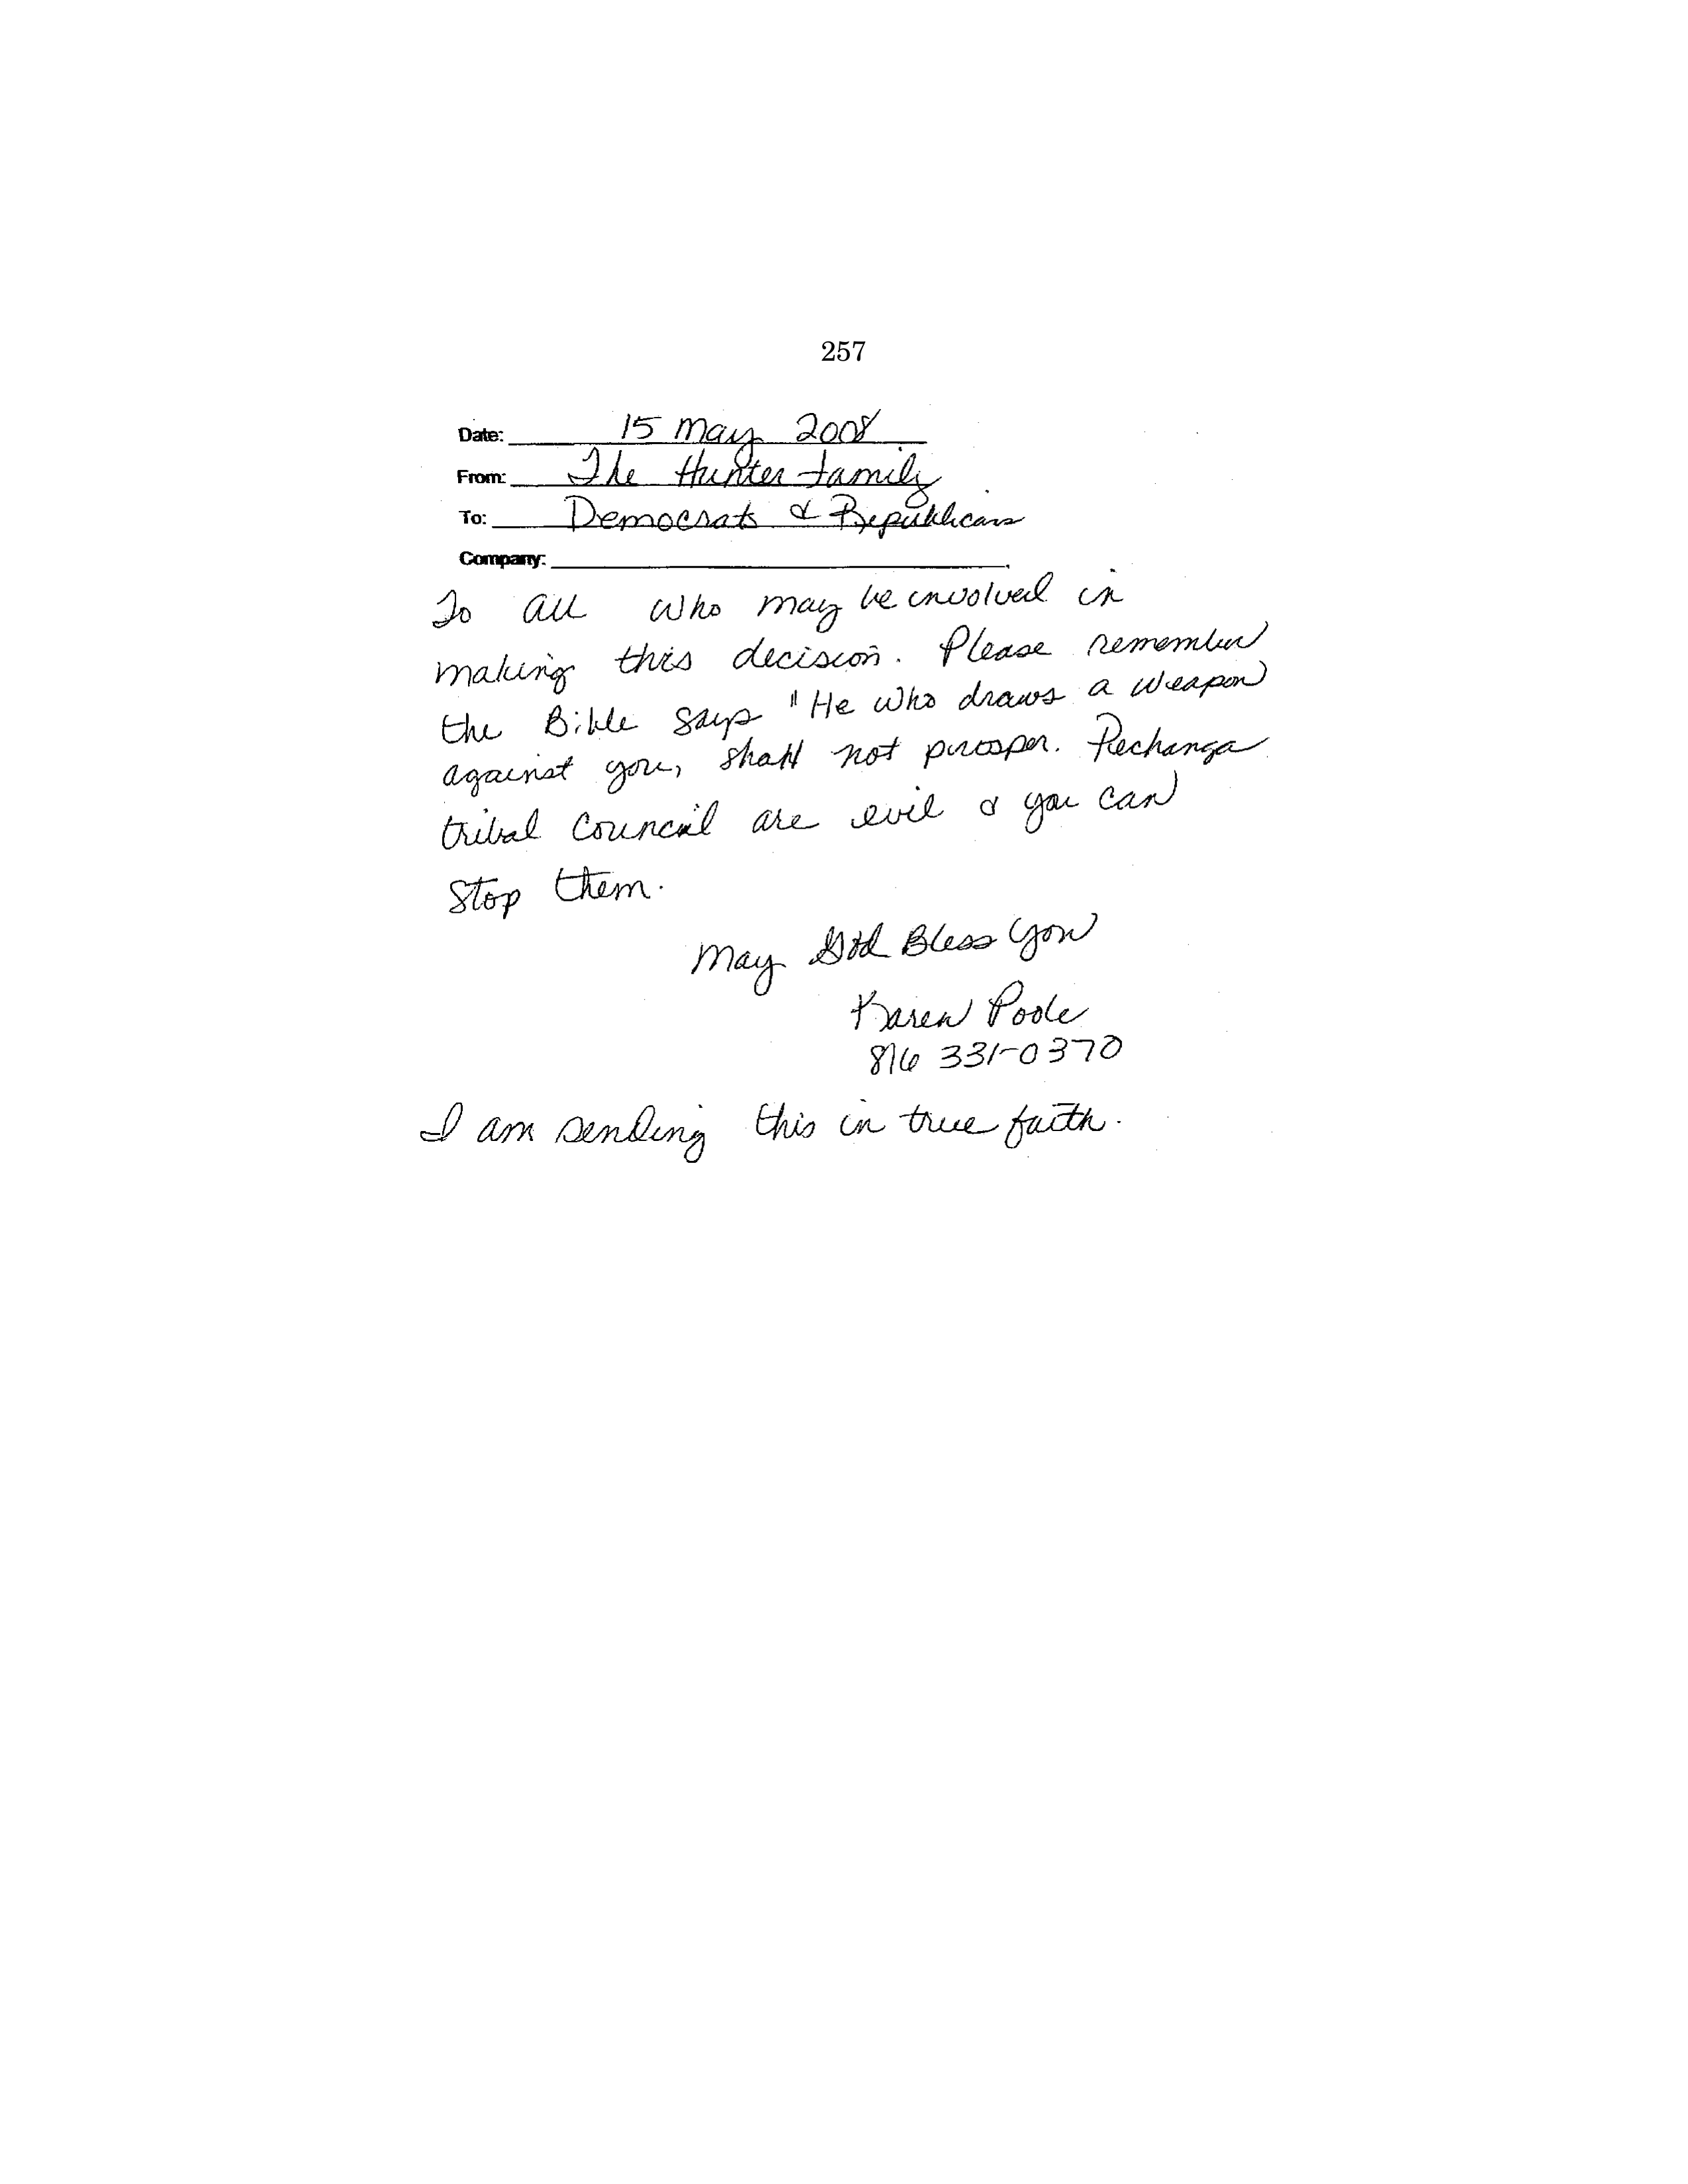 257
Date: 15 May 2008
From: The Hunter Family
To: Democrats & Republicans
Company:
To all who may be involved in
making this decision. Please remember
the Bible says "He who draws a weapon
against you, shall not prosper. Pechanga
tribal Council are evil & you can
stop them.
May God Bless You
Karen Poole
816 331-0370
I am sending this in true faith.